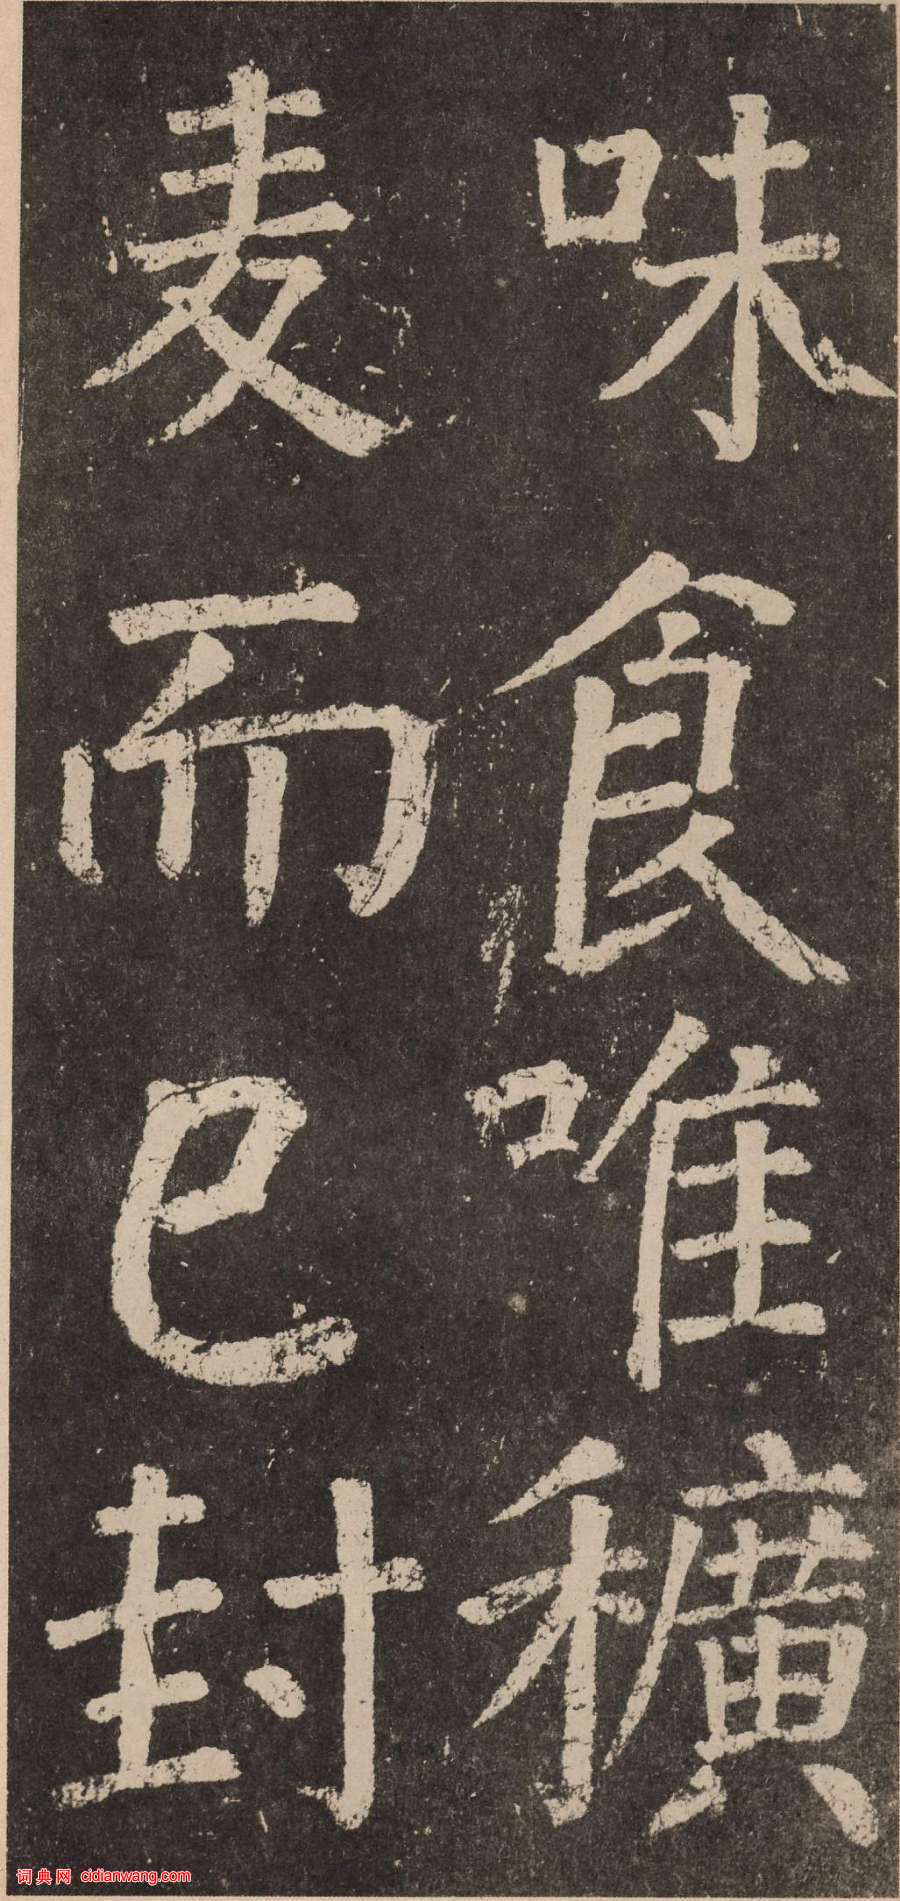 味食唯穬
麦而已封
词典网 cidianwang.com